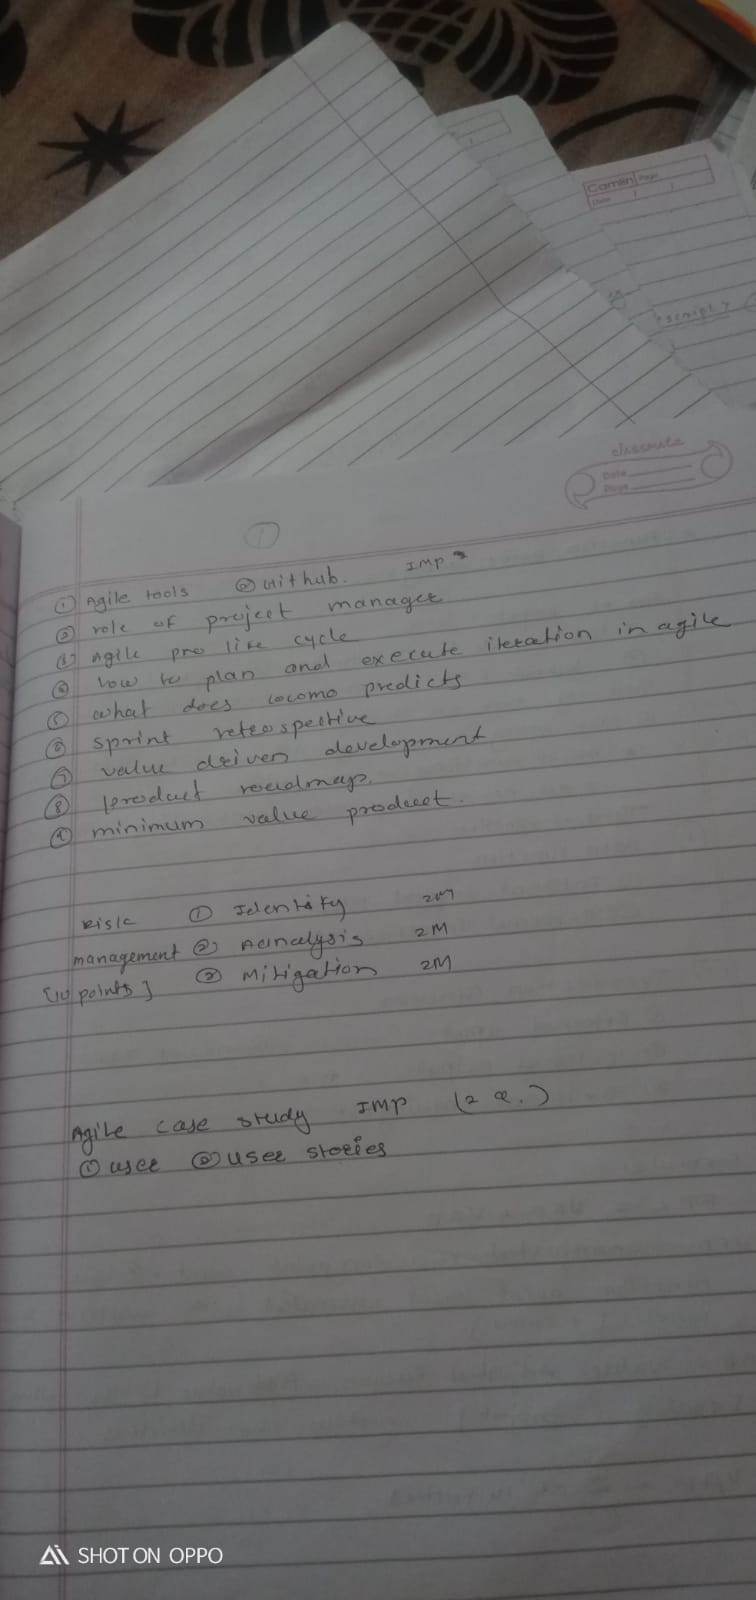 Camlin Page
Date / /
script ?
classmate
Date
Page
①
① Agile tools ② Github. IMP
② role of project manager
③ Agile pro life cycle
④ how to plan and execute iteration in agile
⑤ what does cocomo predicts
⑥ sprint retrospective
⑦ value driven development
⑧ product roadmap.
⑨ minimum value product.
Risk ① Identity 2M
management ② Aanalysis 2M
[10 points] ③ Mitigation 2M
Agile case study IMP (2 Q.)
① user ② user stories
SHOT ON OPPO